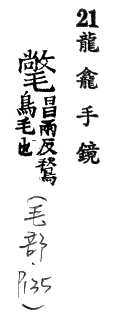 21 龍龕手鏡
氅
昌兩反鶖
鳥毛也
(毛部·P135)